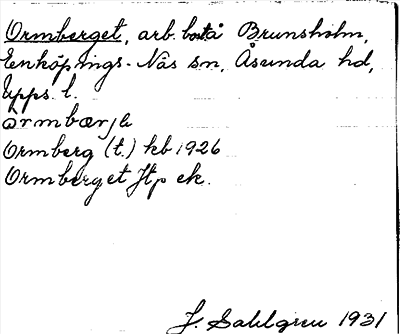 Ormberget, arb.bost å Brunsholm,
Enköpings-Näs sn, Åsunda hd,
Upps. l.
Ormberg (t.) kb 1926
Ormberget Jtp ek.
J. Sahlgren 1931